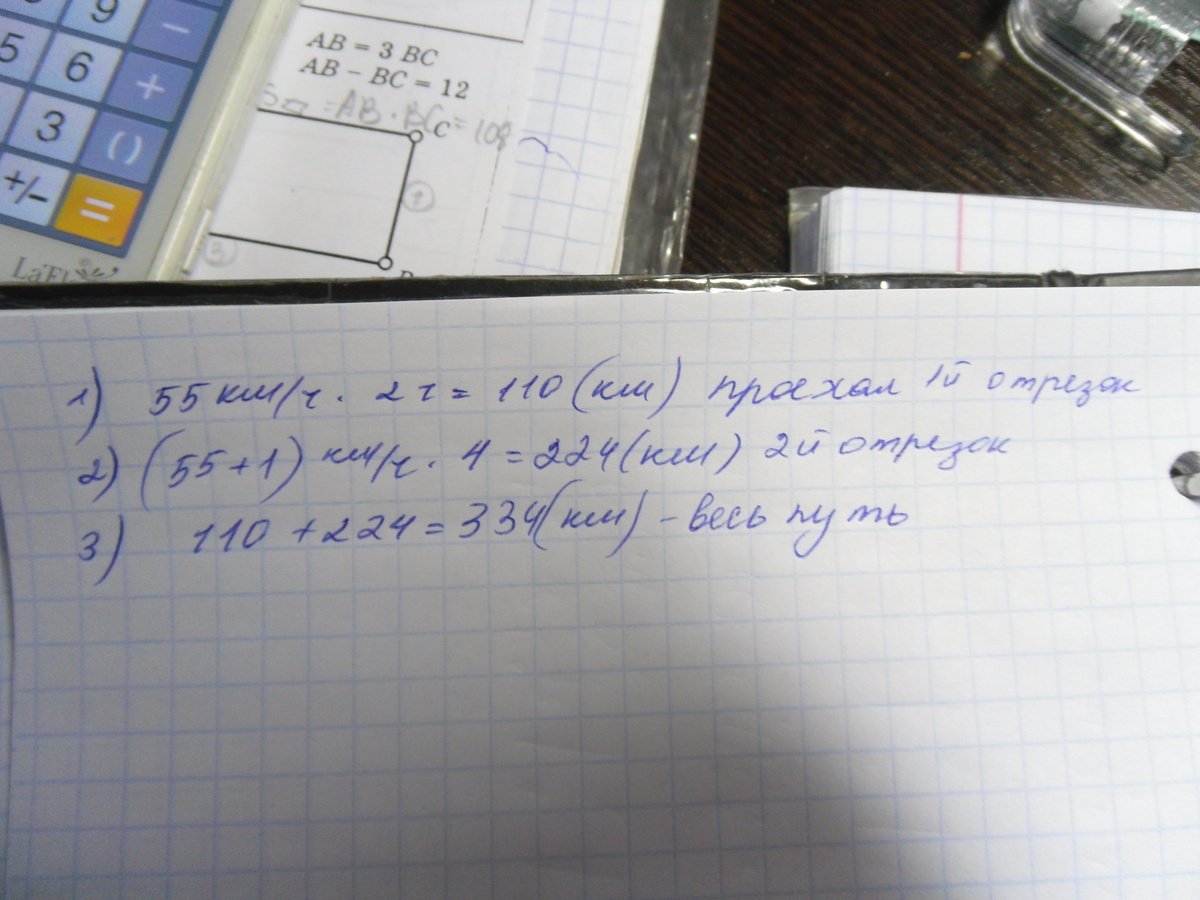 9 −
5 6 +
3 ( )
+/− =
AB = 3 BC
AB − BC = 12
= AB · BC = 108
C
1) 55 км/ч · 2 ч = 110 (км) проехал 1й отрезок
2) (55+1) км/ч · 4 = 224 (км) 2й отрезок
3) 110 + 224 = 334 (км) – весь путь